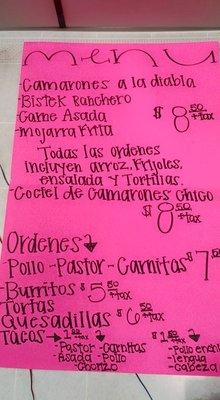 menu
-Camarones a la diabla
-Bistek Ranchero
-Carne Asada
-Mojarra Frita
$8.50 +tax
y Todas las ordenes
incluyen arroz, Frijoles,
ensalada y Tortillas.
-Coctel de Camarones Chico
$8.50 +tax
Ordenes
Pollo -Pastor -Carnitas $7
-Burritos $5.50 +tax
Tortas
Quesadillas $6.50 +tax
Tacos → 1
-Pastor -Carnitas
-Asada -Pollo
-Chorizo
$1 +tax
-Lengua
-Cabeza